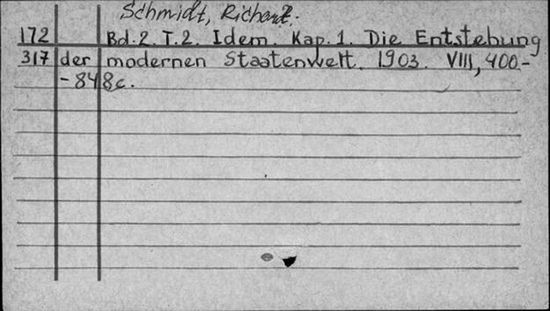 Schmidt, Richard.
172 Bd. 2. T. 2. Idem. Kap. 1. Die Entstehung
317 der modernen Staatenwelt. 1903. VIII, 400-
-848c.